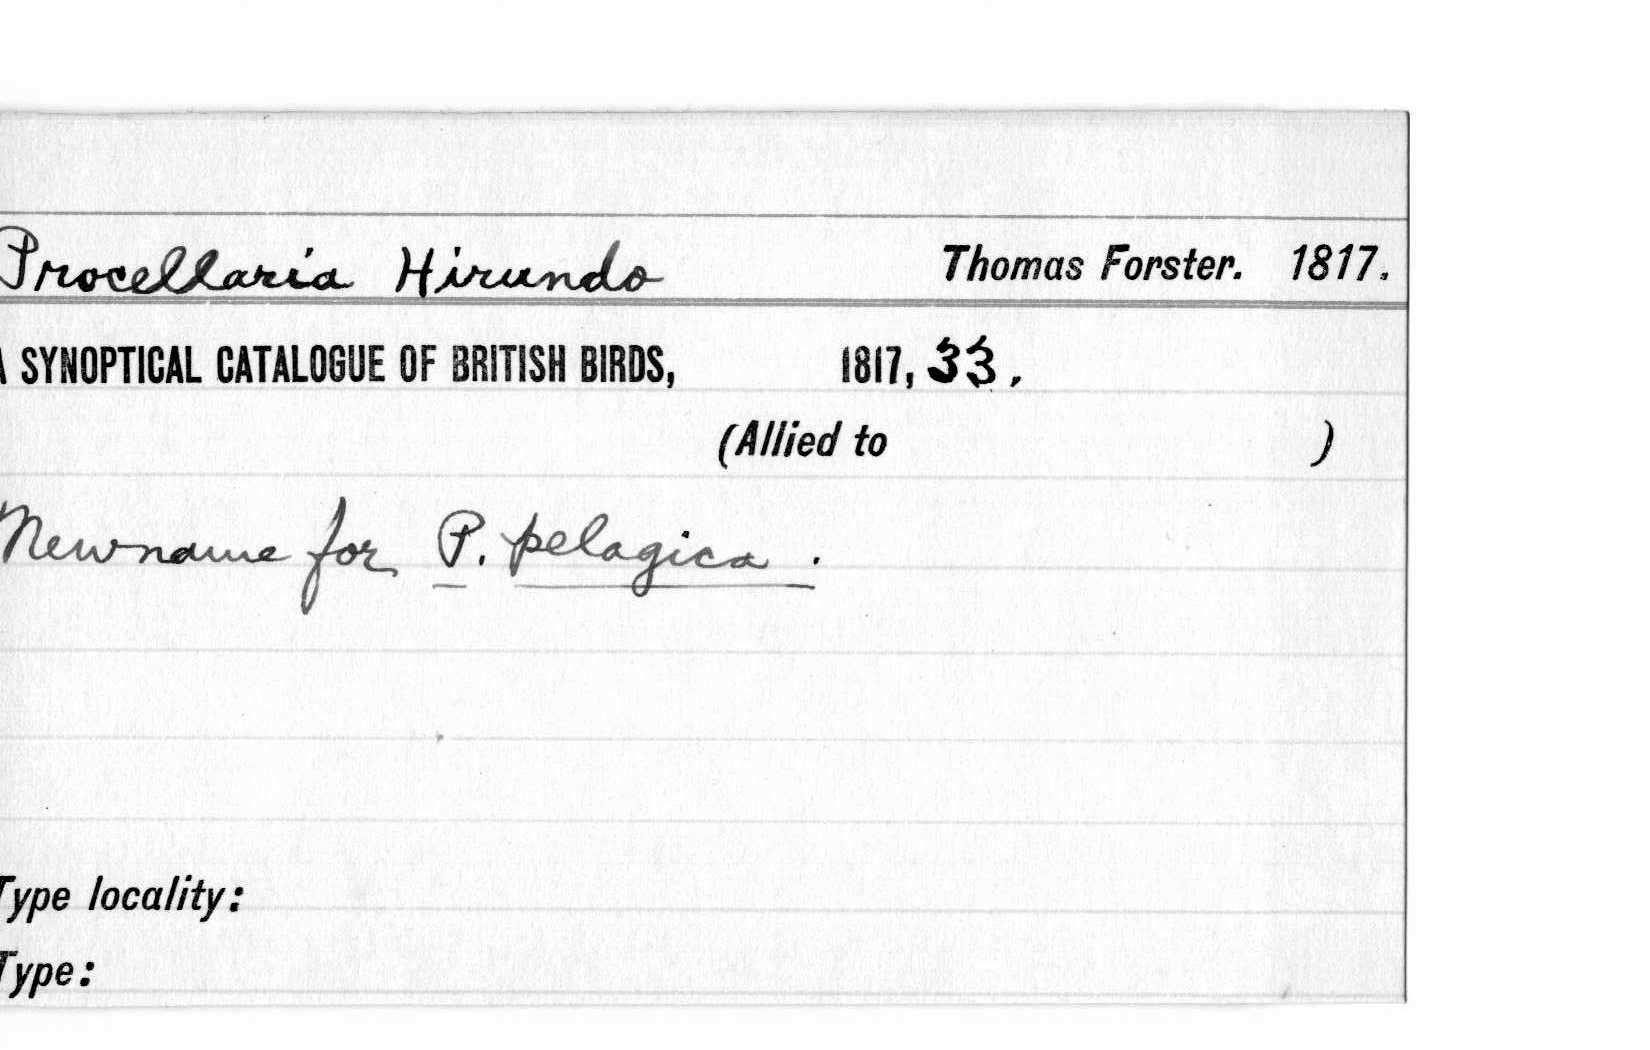 Procellaria Hirundo Thomas Forster. 1817.
A SYNOPTICAL CATALOGUE OF BRITISH BIRDS, 1817, 33.
(Allied to )
New name for P. pelagica.
Type locality:
Type: